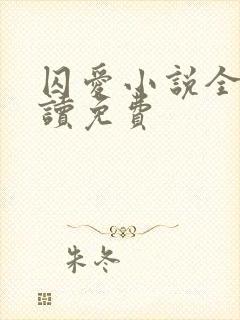 囚愛小説全
讀免費
朱冬